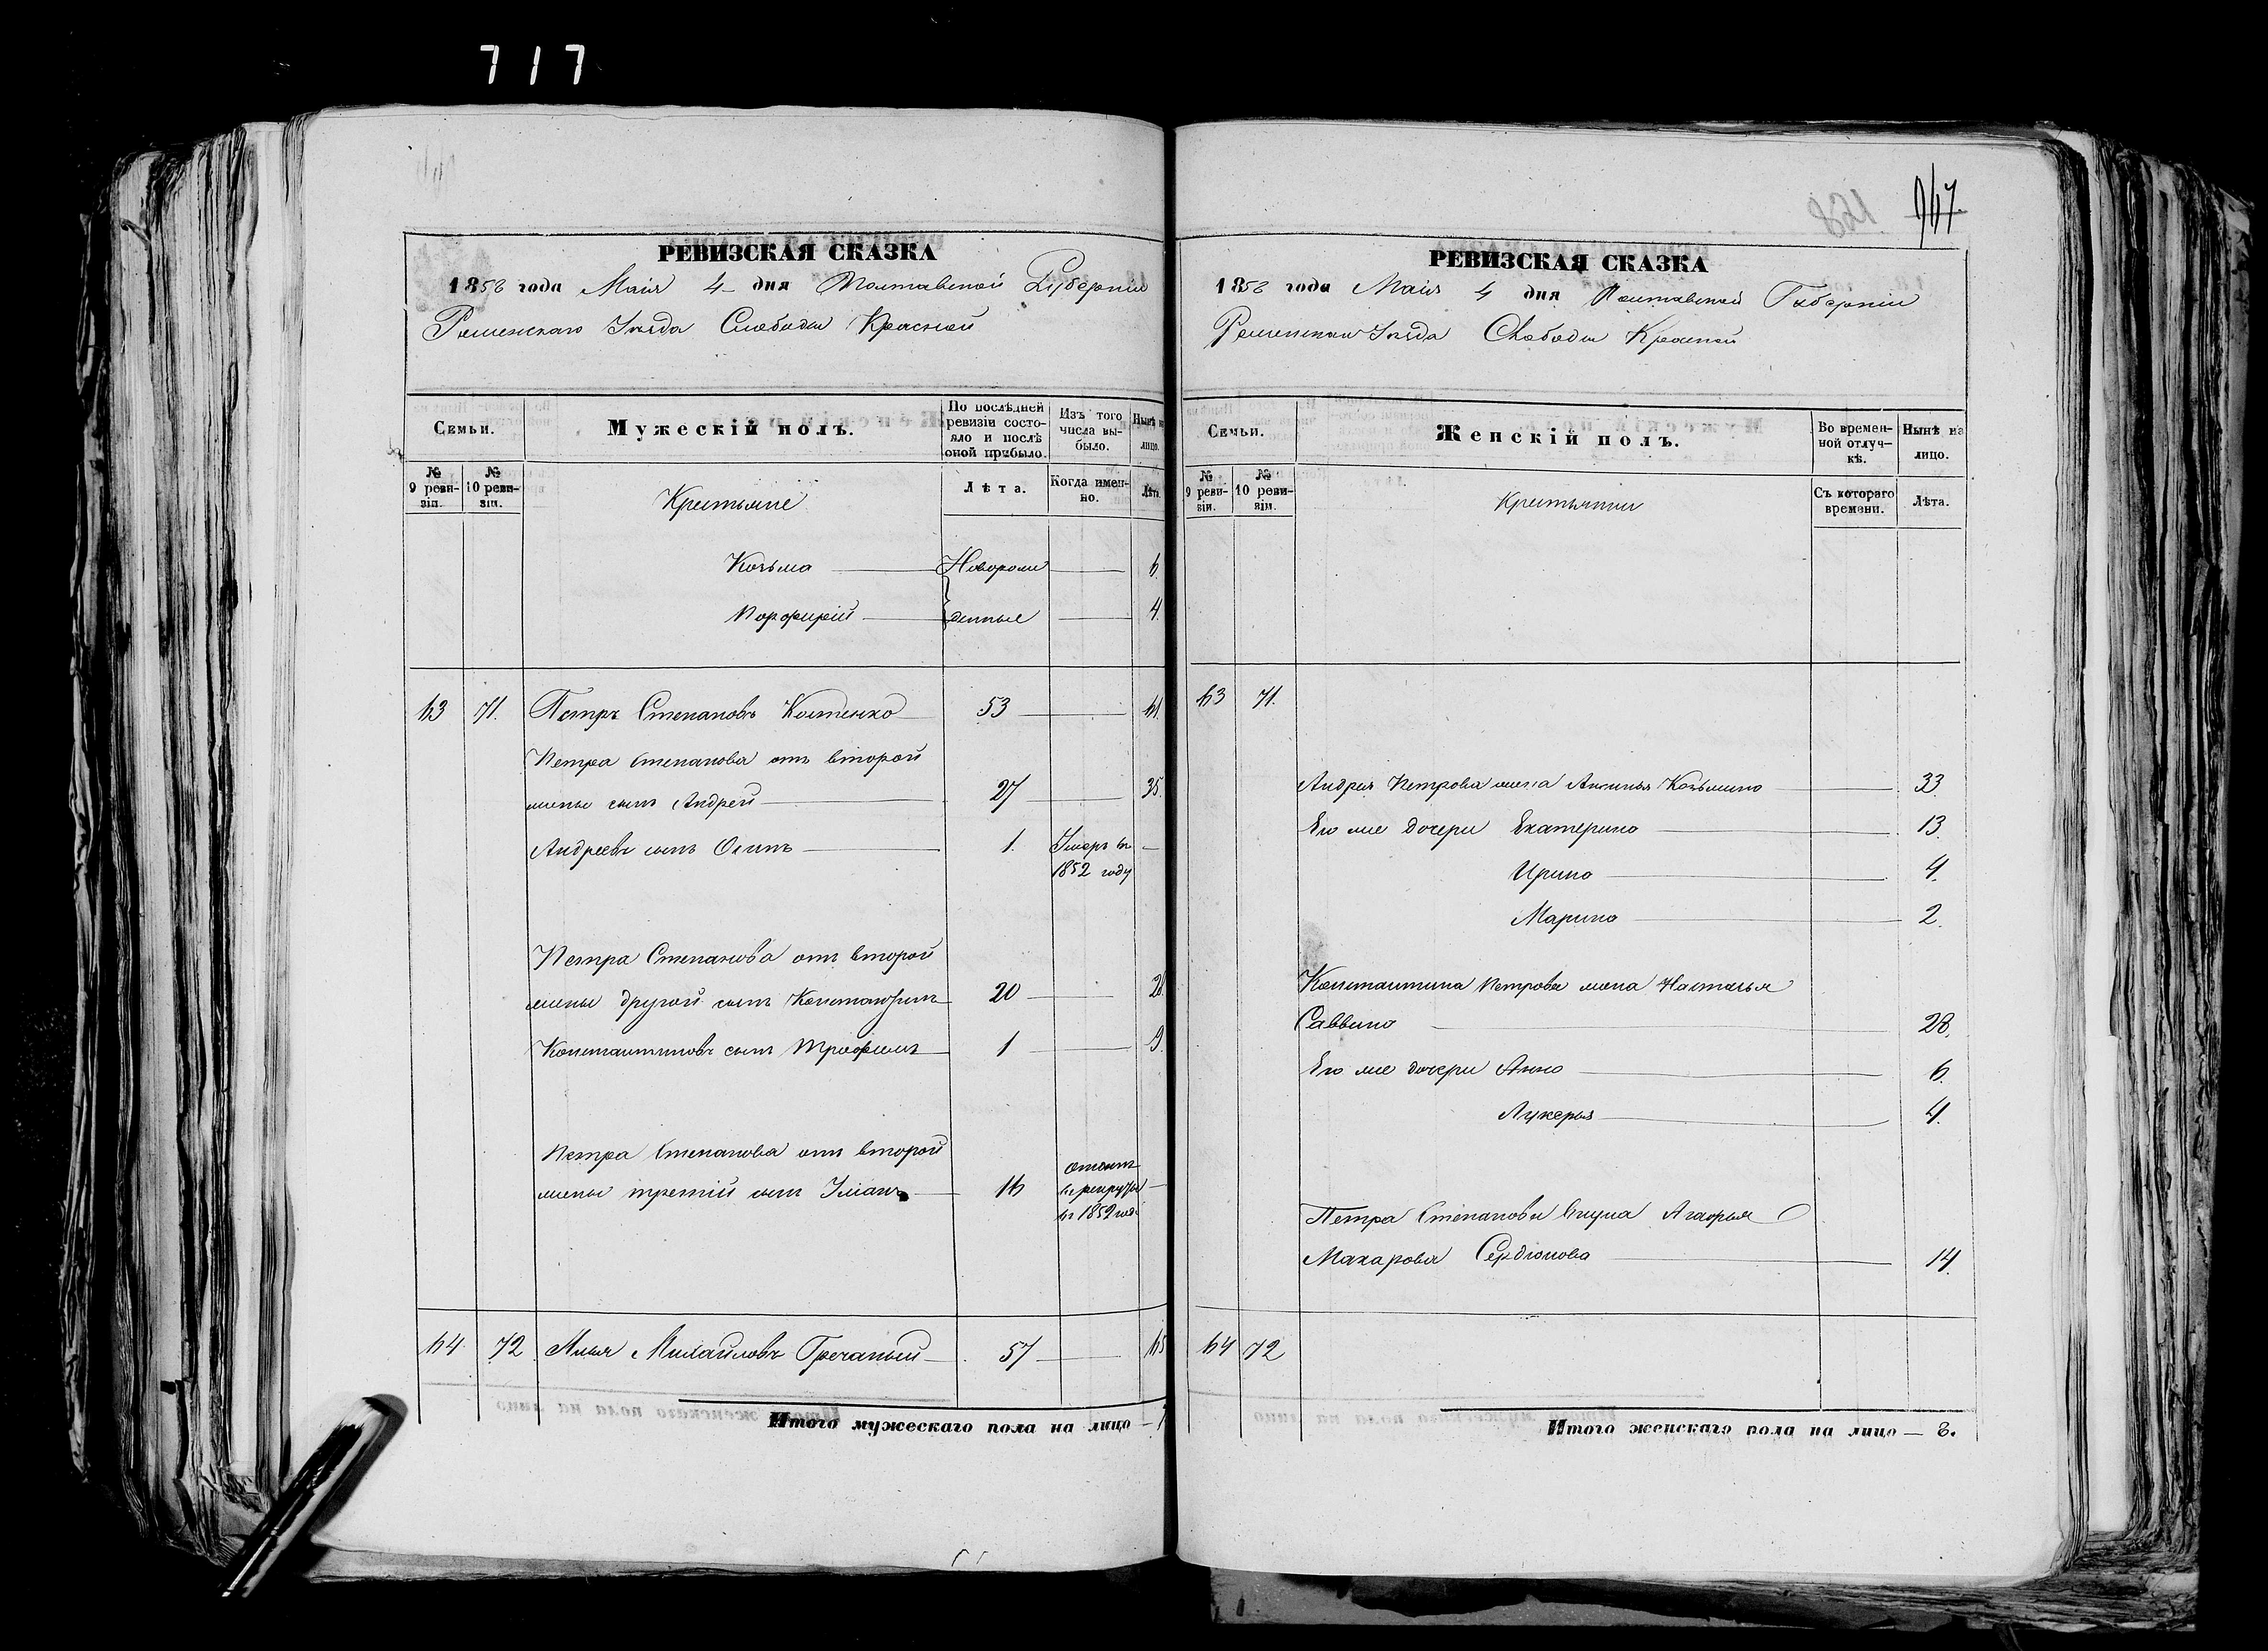 717
РЕВИЗСКАЯ СКАЗКА
1858 года Маія 4 дня Полтавской Губерніи
Роменскаго Уезда Слободы Красной
Семьи.
Мужескій полъ.
По послѣдней ревизіи состояло и послѣ оной прибыло.
Изъ того числа выбыло.
Нынѣ на лицо.
№ 9 ревизіи.
№ 10 ревизіи.
Крестьяне
Лѣта.
Когда именно.
Лѣта.
Козьма Новорож 6
Порфирій денные 4
63 71. Петръ Степановъ Костенко 53 61
Петра Степанова отъ второй
жены сынъ Андрей 27 35.
Андреевъ сынъ Осипъ 1. Умеръ въ
1852 году
Петра Степанова отъ второй
жены другой сынъ Константинъ 20 28.
Константиновъ сынъ Трофимъ 1 9.
Петра Степанова отъ второй
жены третій сынъ 16 въ рекруты
въ 1852 год.
64 72 Илья Михайловъ Гречаный 57 65
Итого мужескаго пола на лицо — 7
РЕВИЗСКАЯ СКАЗКА
1858 года Маія 4 дня Полтавской Губерніи
Роменскаго Уезда Слободы Красной
Семьи.
Женскій полъ.
Во временной отлучкѣ.
Нынѣ на лицо.
№ 9 ревизіи.
№ 10 ревизіи.
Крестьянки
Съ котораго времени.
Лѣта.
63 71.
Андрея Петрова жена Аксинья Козьмина 33
Его же дочери Екатерина 13
Ирина 4.
Марина 2.
Константина Петрова жена Настасья
Саввина 28.
Его же дочери Анна 6.
Лукерья 4.
Петра Степанова внука Агафья
Макарова Сердюкова 14
64 72
Итого женскаго пола на лицо — 8.